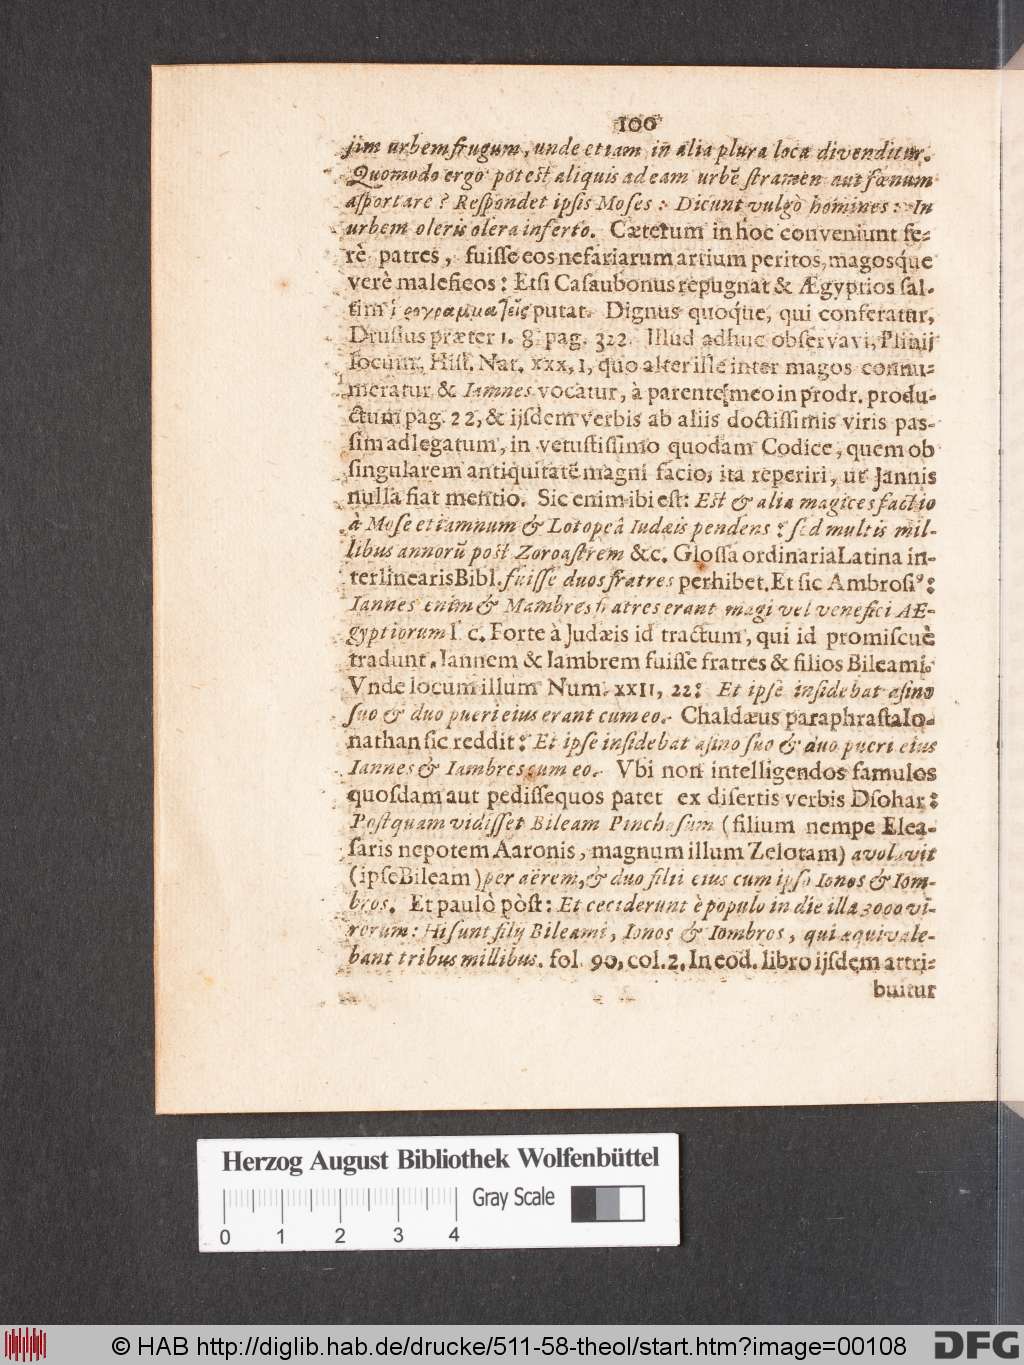 100
jim urbem frugum, unde etiam in alia plura loca divenditur.
Quomodo ergo potest aliquis ad eam urbē stramen aut fœnum
asportare? Respondet ipsis Moses: Dicunt vulgò homines: In
urbem oleris olera inferto. Cæterum in hoc conveniunt fe-
rè patres, fuisse eos nefariarum artium peritos, magosq́ue
verè maleficos: Etsi Casaubonus repugnat & Ægyptios sal-
tim putat. Dignus quoq́ue, qui conferatur,
Drusius præter 1. 8. pag. 322. Illud adhuc observavi, Plinij
locum, Hist. Nat. xxx, 1, quo alter iste inter magos connu-
meratur & Iamnes vocatur, à parente meo in prodr. produ-
ctum pag. 22, & ijsdem verbis ab aliis doctissimis viris pas-
sim adlegatum, in vetustissimo quodam Codice, quem ob
singularem antiquitatē magni facio, ita reperiri, ut Jannis
nulla fiat mentio. Sic enim ibi est: Est & alia magices factio
à Mose etiamnum & Lotopeâ Iudæis pendens: sed multis mil-
libus annorū post Zoroastrem &c. Glossa ordinaria Latina in-
terlinearis Bibl. fuisse duos fratres perhibet. Et sic Ambrosi⁹:
Iannes enim & Mambres fratres erant magi vel venefici AE-
gyptiorum l. c. Forte à Judæis id tractum, qui id promiscuè
tradunt, Iannem & Iambrem fuisse fratres & filios Bileami.
Vnde locum illum Num. xxII, 22: Et ipse insidebat asino
suo & duo pueri eius erant cum eo. Chaldæus paraphrasta Io-
nathan sic reddit: Et ipse insidebat asino suo & duo pueri eius
Iannes & Iambres cum eo. Vbi non intelligendos famulos
quosdam aut pedissequos patet ex disertis verbis Dsohar:
Postquam vidisset Bileam Pinchasum (filium nempe Elea-
saris nepotem Aaronis, magnum illum Zelotam) avolavit
(ipse Bileam) per aërem, & duo filii eius cum ipso Ionos & Iom-
bros. Et paulò pòst: Et ceciderunt è populo in die illa 3000 vi-
rorum: Hi sunt filij Bileami, Ionos & Iombros, qui æquivale-
bant tribus millibus. fol. 90, col. 2. In eod. libro ijsdem attri-
buitur
Herzog August Bibliothek Wolfenbüttel
Gray Scale
0 1 2 3 4
© HAB http://diglib.hab.de/drucke/511-58-theol/start.htm?image=00108
DFG